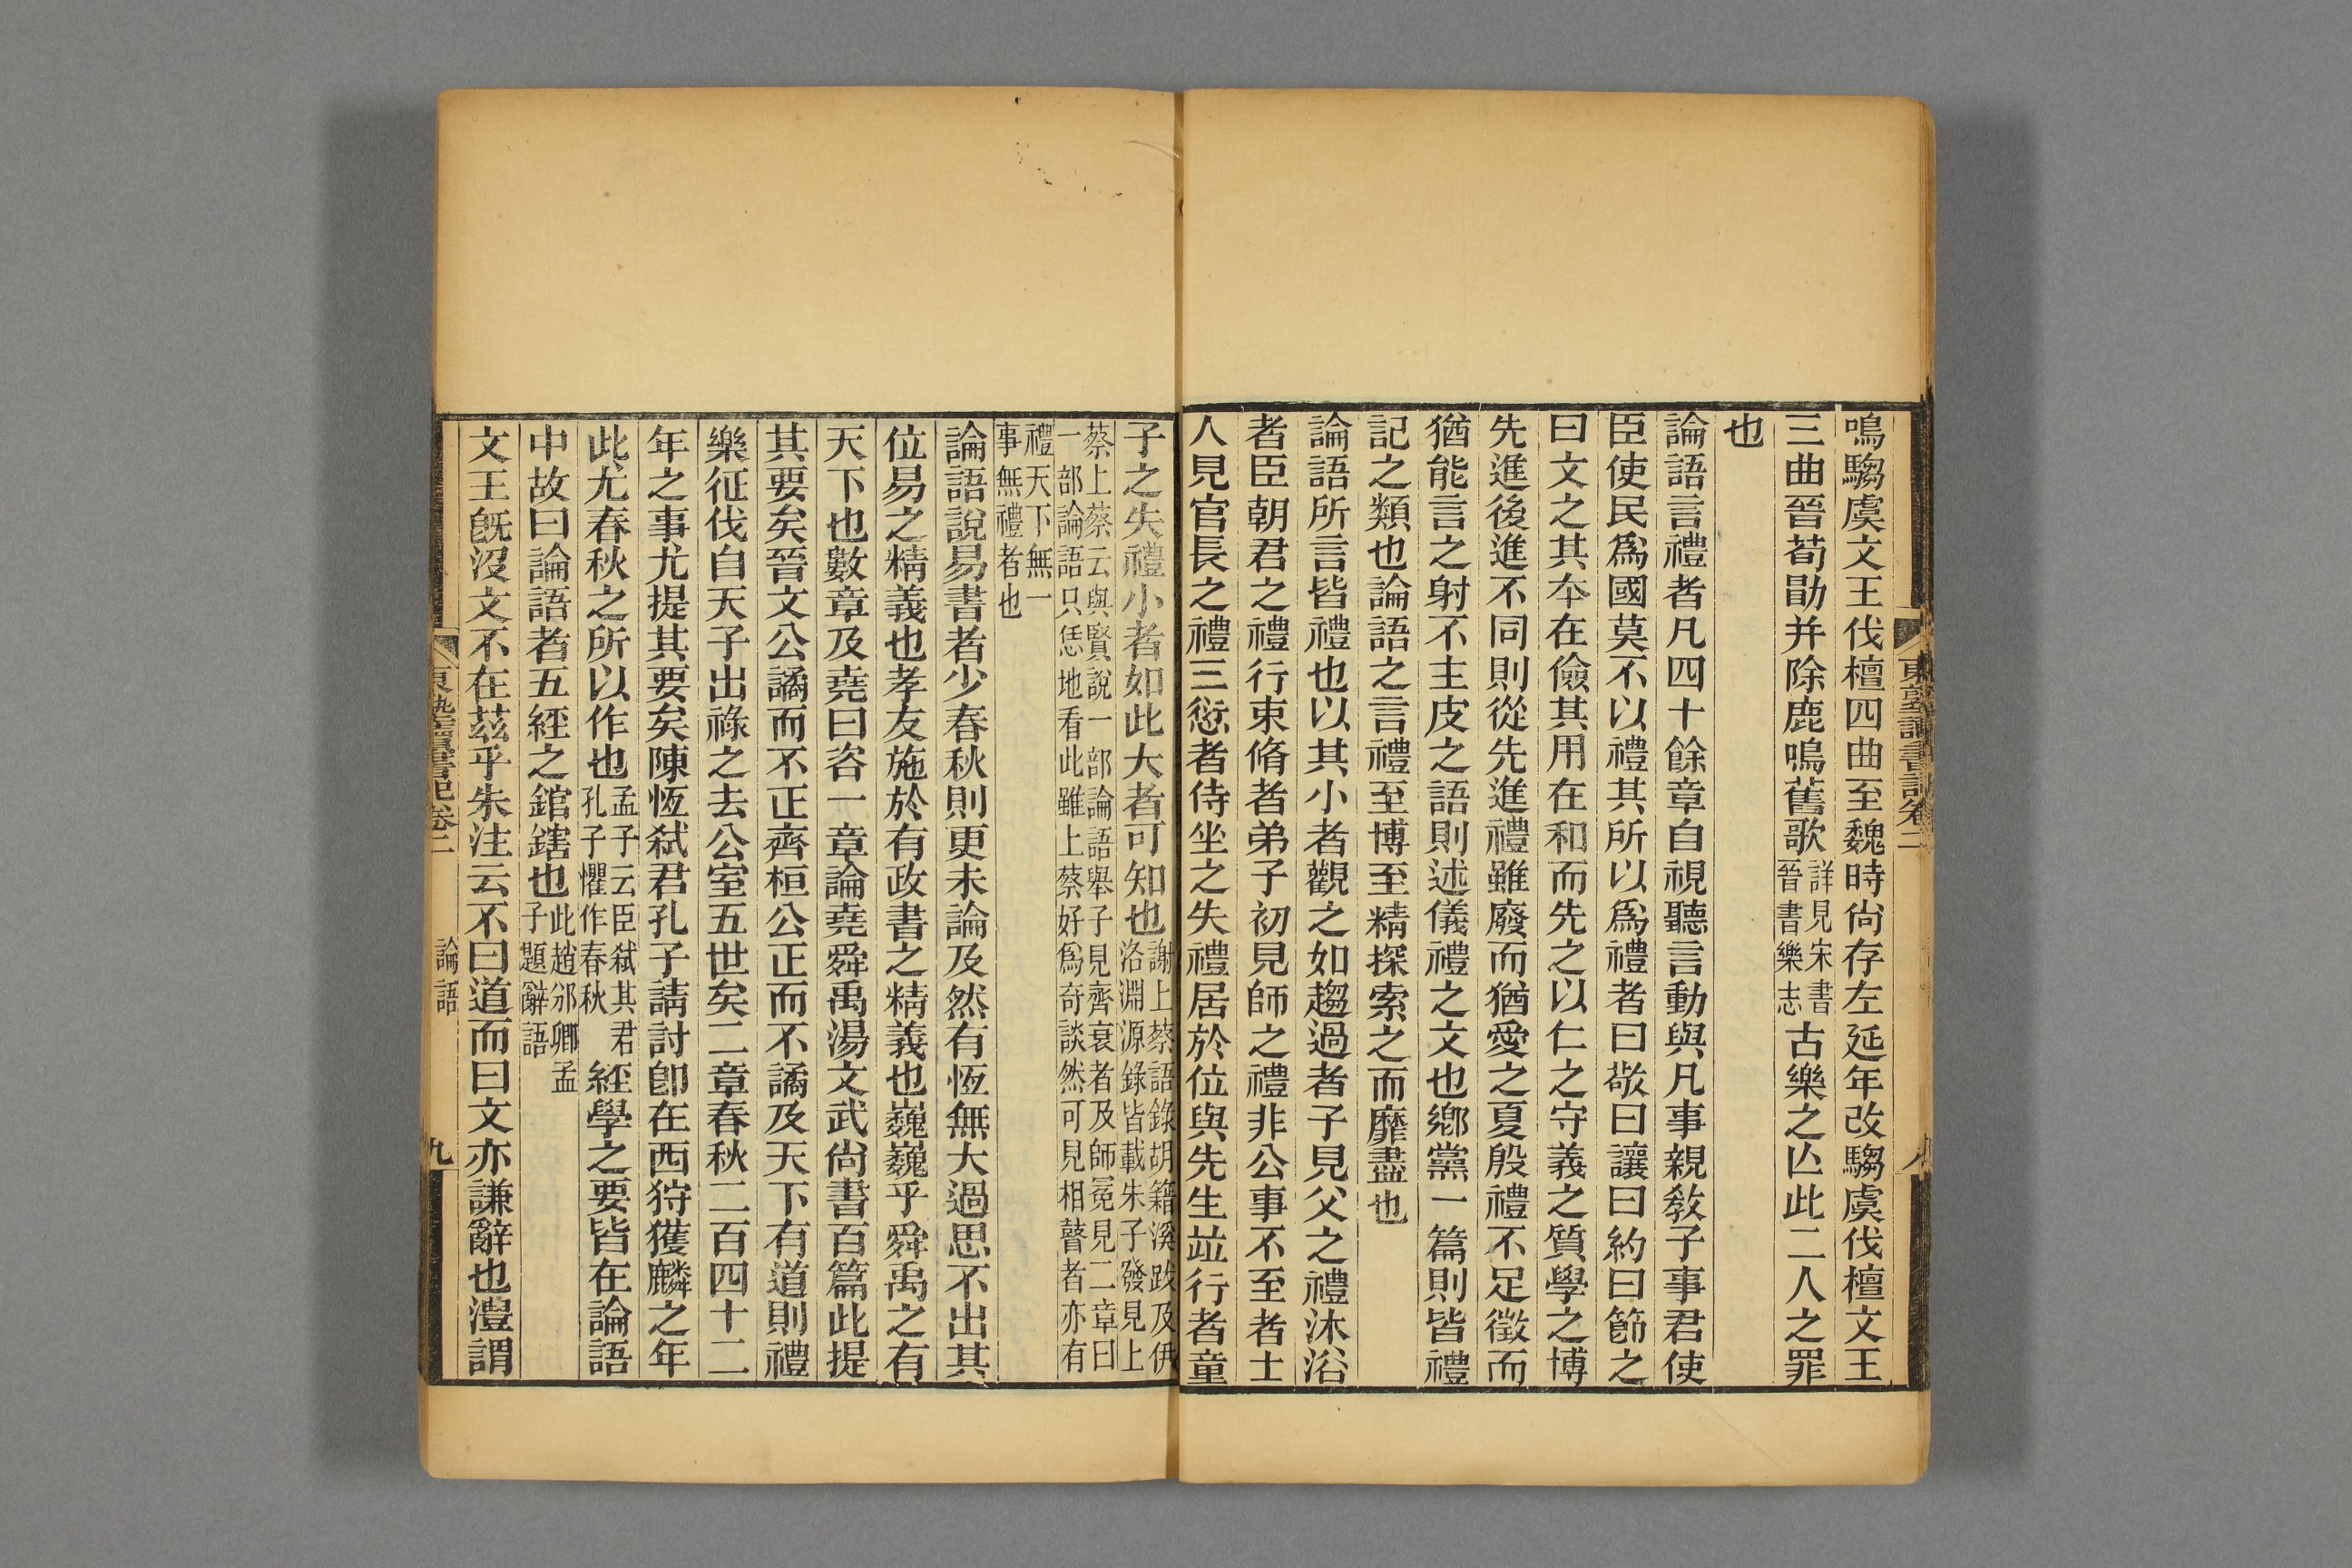 鳴騶虞文王伐檀四曲至魏時尙存左延年改騶虞伐檀文王
三曲晉荀勖并除鹿鳴舊歌詳見宋書晉書樂志古樂之亾此二人之罪
也
論語言禮者凡四十餘章自視聽言動與凡事親敎子事君使
臣使民爲國莫不以禮其所以爲禮者曰敬曰讓曰約曰節之
曰文之其本在儉其用在和而先之以仁之守義之質學之博
先進後進不同則從先進禮雖廢而猶愛之夏殷禮不足徵而
猶能言之射不主皮之語則述儀禮之文也鄕黨一篇則皆禮
記之類也論語之言禮至博至精探索之而靡盡也
論語所言皆禮也以其小者觀之如趨過者子見父之禮沐浴
者臣朝君之禮行束脩者弟子初見師之禮非公事不至者士
人見官長之禮三愆者侍坐之失禮居於位與先生並行者童
東塾讀書記卷二
八
子之失禮小者如此大者可知也謝上蔡語錄胡籍溪跋及伊
洛淵源錄皆載朱子發見上
蔡上蔡云與賢說一部論語舉子見齊衰者及師冕見二章曰
一部論語只恁地看此雖上蔡好爲奇談然可見相瞽者亦有
禮天下無一
事無禮者也
論語說易書者少春秋則更未論及然有恆無大過思不出其
位易之精義也孝友施於有政書之精義也巍巍乎舜禹之有
天下也數章及堯曰咨一章論堯舜禹湯文武尙書百篇此提
其要矣晉文公譎而不正齊桓公正而不譎及天下有道則禮
樂征伐自天子出祿之去公室五世矣二章春秋二百四十二
年之事尤提其要矣陳恆弑君孔子請討卽在西狩獲麟之年
此尤春秋之所以作也孟子云臣弑其君孔子懼作春秋經學之要皆在論語
中故曰論語者五經之錧鎋也此趙邠卿孟子題辭語
文王旣沒文不在茲乎朱注云不曰道而曰文亦謙辭也澧謂
東塾讀書記卷二
論語
九